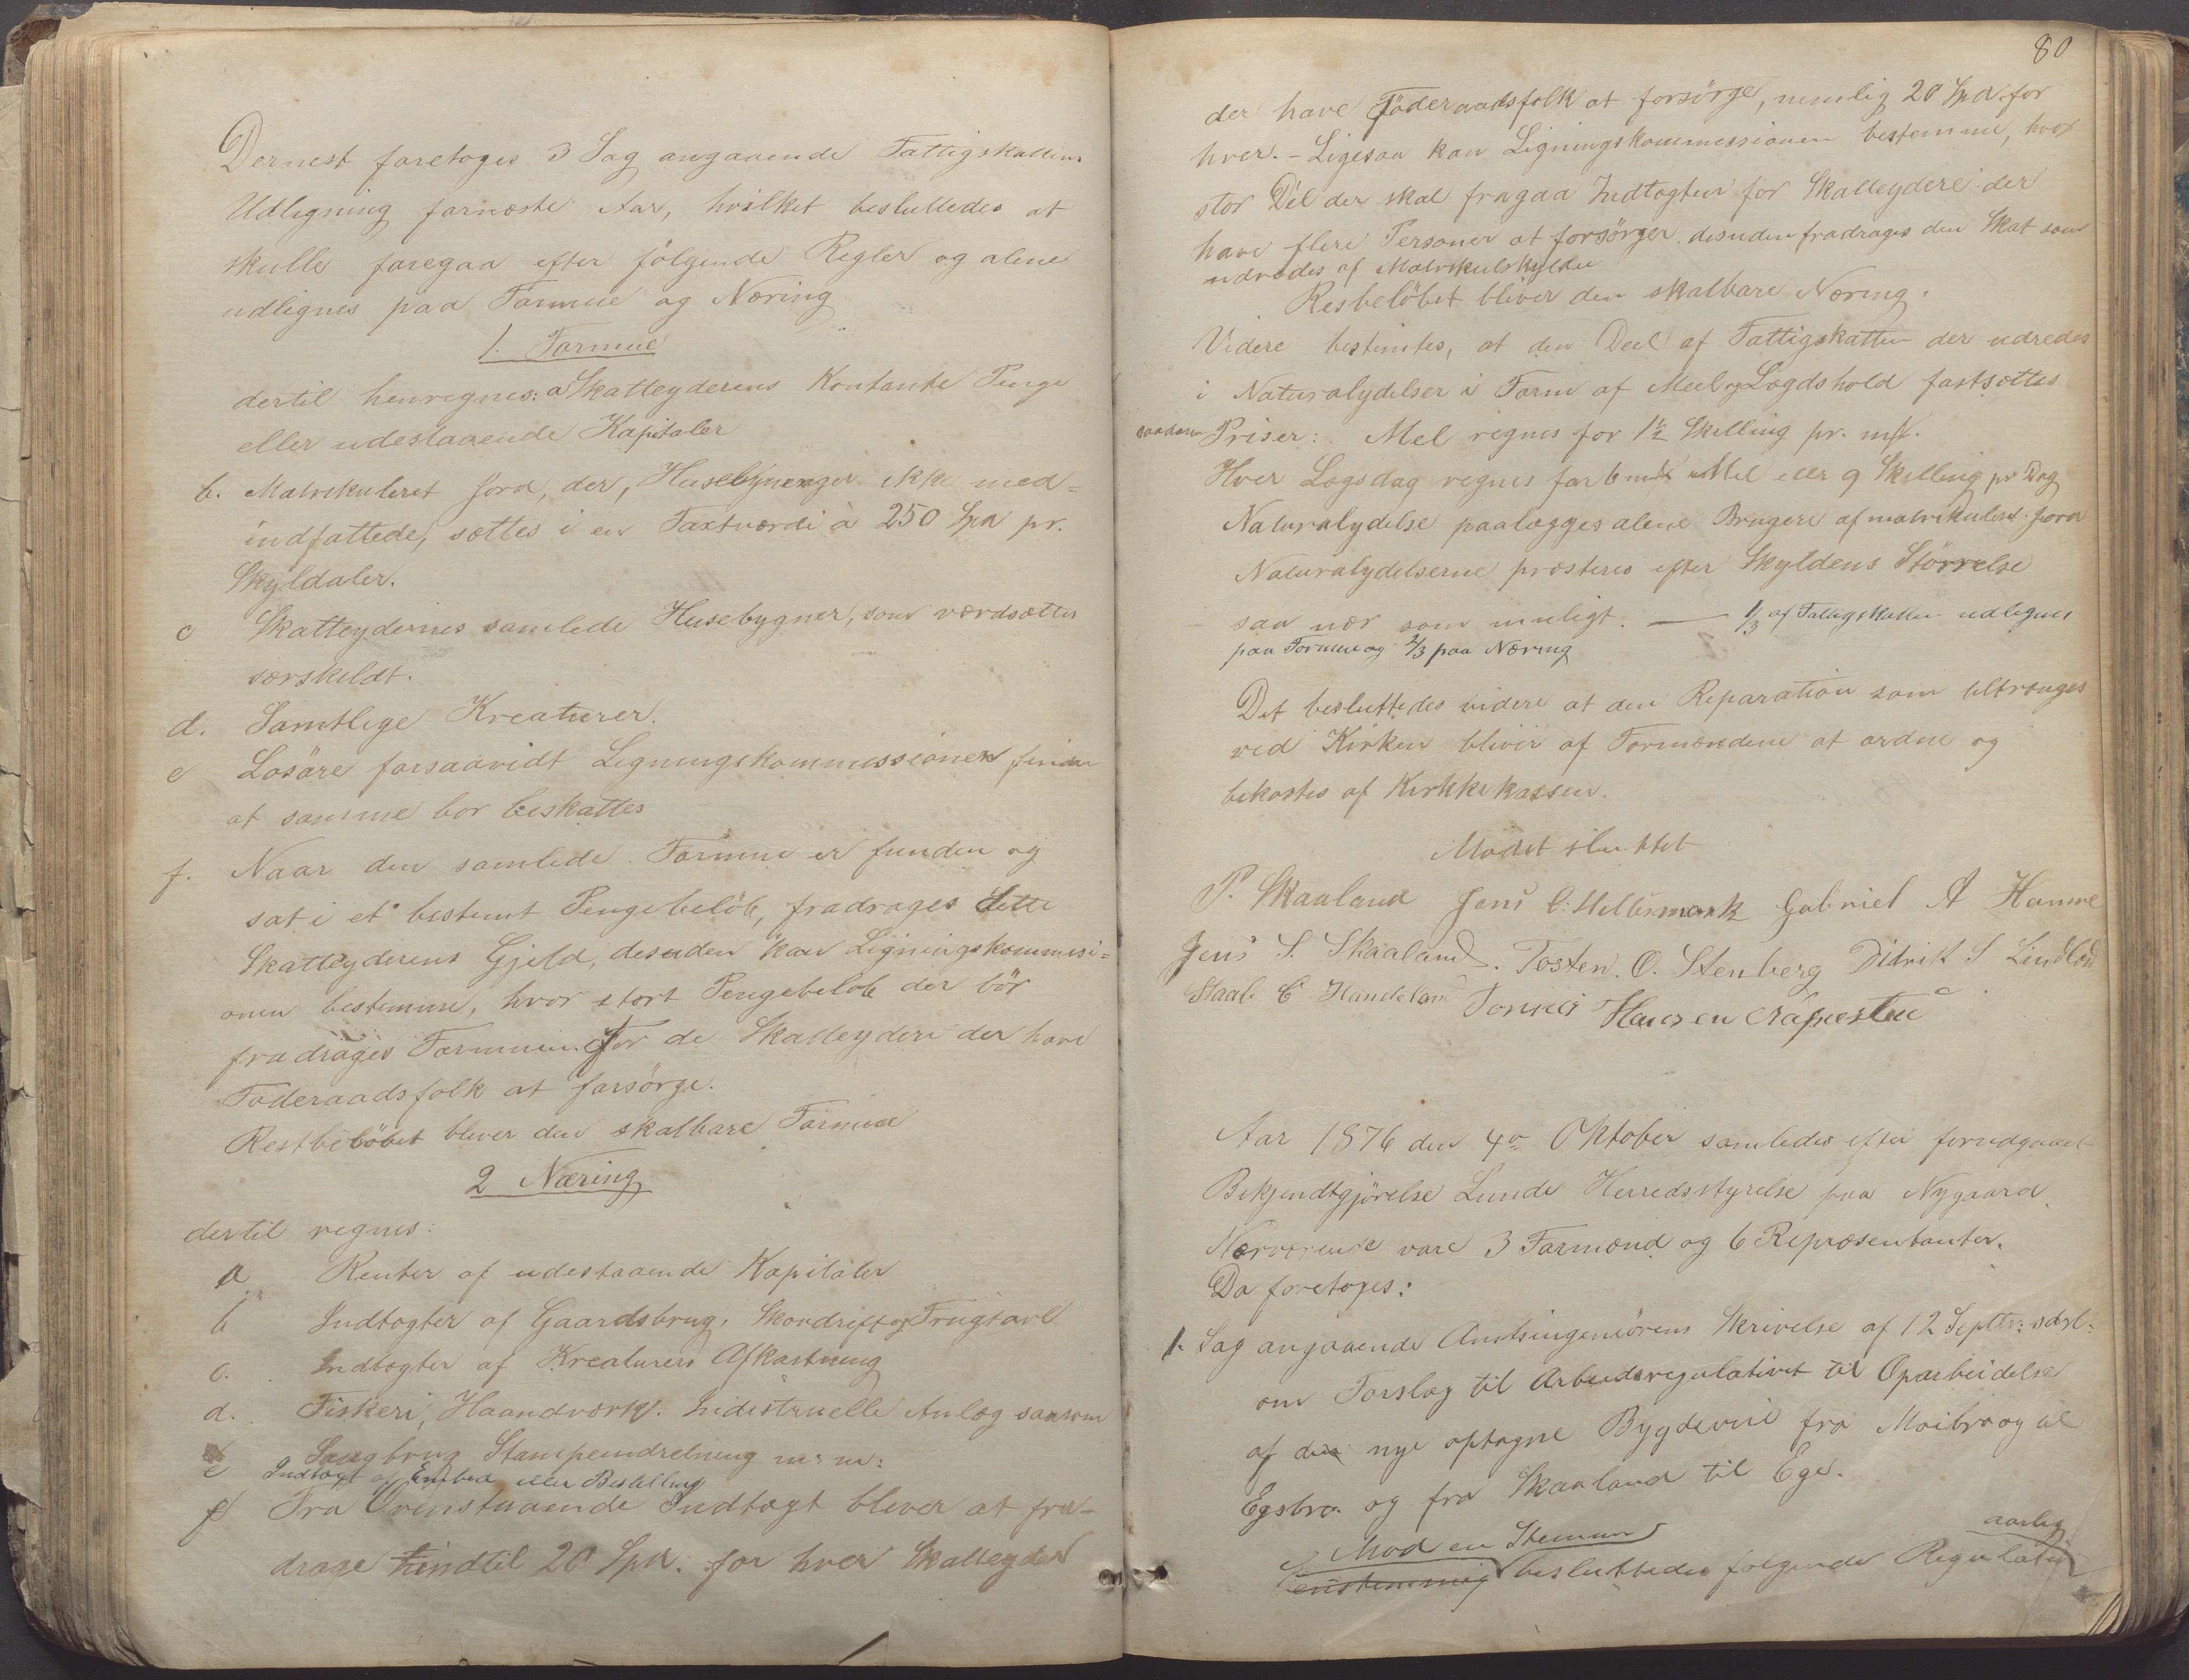 Dernest foretoges 3 Sag angaaende Fattigskattens
Udligning for næste Aar, hvilket besluttedes at
skulle foregaa efter følgende Regler og alene
udlignes paa Formue og Næring
1. Formue
dertil henregnes: a Skatteyderens Kontante Penge
eller udestaaende Kapitaler
b. Matrikuleret Jord, der, Husebygninger ikke med=
indfattede, sættes i en Taxtværdi à 250 Spd pr.
Skyldaler.
c Skatteydernes samlede Husebygner, som værdsættes
særskildt.
d. Samtlige Kreaturer.
e Løsøre forsaavidt Ligningskommissionen finder
at samme bør beskattes
f. Naar den samlede Formue er funden og
sat i et bestemt Pengebeløb, fradrages dette
Skatteyderens Gjeld, desuden kan Ligningskommisi=
onen bestemme, hvor stort Pengebeløb der bør
fradrages Formuen for de Skatteydere der have
Føderaadsfolk at forsørge.
Restbeløbet bliver den skatbare Formue
2 Næring
dertil regnes:
a Renter af udestaaende Kapitaler
b Indtægter af Gaardsbrug, Skovdrift og Frugtavl
c. Indtægter af Kreaturers Afkastning
d. Fiskeri, Haandværk, Indistruelle Anlæg saasom
Saugbrug Stampeindretning m: m:
e Indtægt af Embed eller Bestilling
f Fra Ovenstaaende Indtægt bliver at fra-
drage indtil 20 Spd. for hver Skatteyder
80
der have Føderaadsfolk at forsørge, nemlig 20 Spd. for
hver. - Ligesaa kan Ligningskommessionen bestemme, hvor
stor Del der skal fragaa Indtægten for Skatteydere der
have flere Personer at forsørger. desuden fradrages den Skat som
udredes af Matrikulskylden
Resbeløbet bliver den skatbare Næring.
Videre bestemtes, at den Deel af Fattigskatten der udredes
i Naturalydelser i Form af Meel og Lægdshold fastsættes
saadanne Priser: Mel regnes for 1½ Skilling pr. mk.
Hver Lægsdag regnes for 6 mk Mel eller 9 Skilling pr Dag
Naturalydelse paalægges alene Brugere af matrikuleret Jord
Naturalydelserne præsteres efter Skyldens Størrelse
saa nær som muligt. — 1/3 af Fattigskatten udlignes
paa Formue og 2/3 paa Næring
Det besluttedes videre at den Reparation som tiltrænges
ved Kirken bliver af Formændene at ordne og
bekostes af Kirkekassen.
Mødet sluttet
P. Skaaland Jens C. Mellesmark Gabriel A Hamre
Jens S. Skaaland. Tosten. O. Stenberg Didrik S Lindland
Staal. C Handeland Tonnes Hansen
Aar 1876 den 4de Oktober samledes efter forudgaaet
Bekjendtgjørelse Lunde Herredsstyrelse paa Nygaard.
Nærværende vare 3 Formænd og 6 Repræsentanter.
Da foretoges:
1. Sag angaaende Amtsingeniørens Skrivelse af 12 Septbr: sdst:
om Forslag til Arbeidsregulativet til Oparbeidelse
af den nye optagne Bygdevei fra Moibro og til
Egsbro. og fra Skaaland til Ege.
Mod en Stemme aarlig
enstemmig besluttedes følgende Regulativ